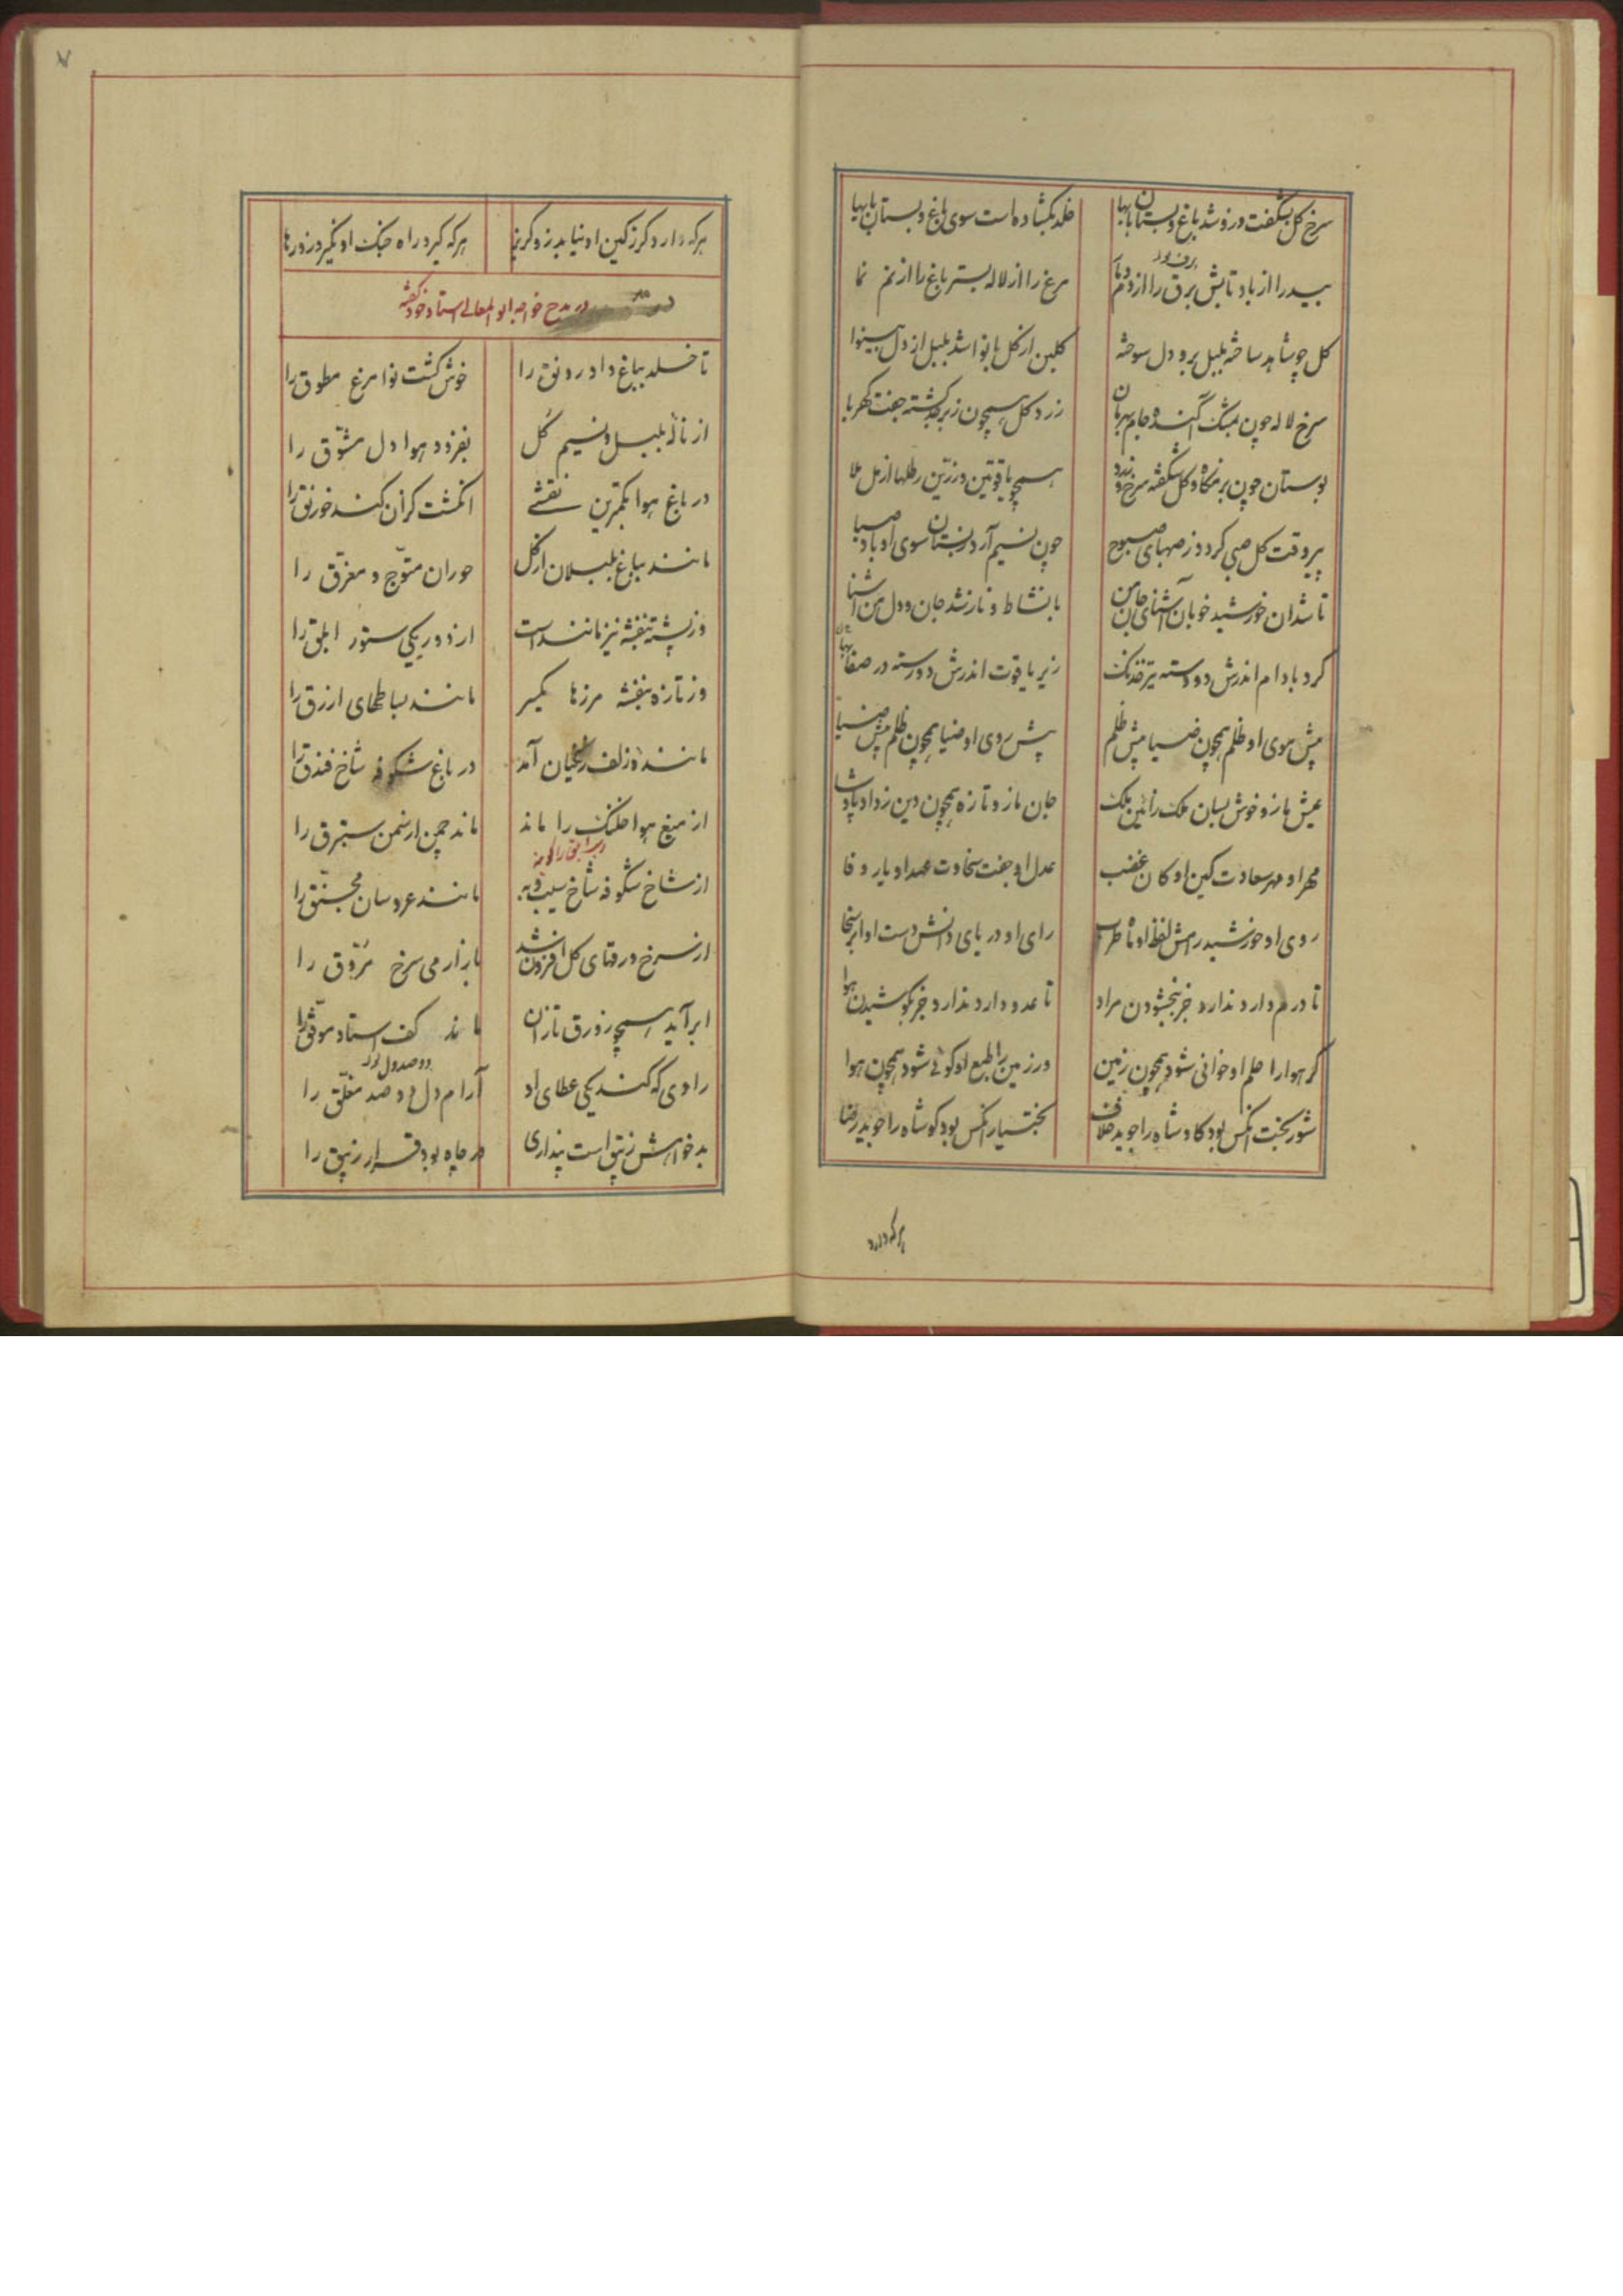 سرخ گل بشکفت و زو شد باغ و بستان با بها
خلد بگشاده است سوی باغ و بستان بابها
بید را از باد تابش برق را از دم
مرغ را از لاله بستر باغ را از نم نما
گل چو شاهد ساخته بلبل برو دل سوخته
گلبن از گل با نوا شد بلبل از دل بینوا
سرخ لاله چون بمشک آکنده جام بهرمان
زرد گل همچون زبرجد گشته جفت کهربا
بوستان چون بزمگاه و گل شکفته سرخ و زرد
همچو یاقوتین و زرین رطلها از مل ملا
پیر وقت گل صبی گردد ز صهبای صبوح
چون نسیم آرد ز بستان سوی او باد صبا
تا شد آن خورشید خوبان آشنای جان من
با نشاط و ناز شد جان و دل من آشنا
گرد بادام اندرش دو دسته تیر خدنگ
زیر یاقوت اندرش دو رسته در
پیش موی او ظلم همچون ضیا پیش ظلم
پیش روی او ضیا همچون ظلم پیش ضیا
عیش ما زو خوش بسان ملک را زین ملک
جان ما زو تازه همچون دین ز داد پادشا
مهر او مهر سعادت کین او کان غضب
عدل او جفت سخاوت عهد او یار وفا
روی او خورشید رامش لفظ او ماه طرب
رای او دریای دانش دست او ابر سخا
تا درم دارد ندارد جز ببخشودن مراد
تا عدو دارد ندارد جز بکوشیدن هوا
گر هوا را حلم او خوانی شود همچون زمین
ور زمین را طبع او گوئی شود همچون هوا
شوربخت آنکس بود کاو شاه را جوید خلاف
بختیار آنکس بود کو شاه را جوید رضا
هرکه دارد
هرکه دارد گرز کین او نیابد زو گریز
هرکه گیرد راه جنگ او نگیرد زو رها
در مدح خواجه ابوالمعالی استاد خود گفته
تا خلد بباغ داد رونق را
خوش گشت نوا مرغ مطوق را
از نالهٔ بلبل و نسیم گل
بفزود هوا دل مشوق را
در باغ هوا بکمترین نقشی
انگشت گزان کند خورنق را
مانند بباغ بلبلان از گل
حوران متوج و مقرق را
وز پشته بنفشه نیز مانند است
از دور یکی ستور ابلق را
وز تازه بنفشه مرزها یکسر
مانند بساطهای ازرق را
ماننده زلف زنگیان آمد
در باغ شکوفه شاخ فندق را
از میغ هوا خلنگ را ماند
ماند چمن از سمن ستبرق را
از شاخ شکوفه شاخ سیب و به
مانند عروسان مخنق را
از سرخ ورقهای گل افزون شد
بازار می سرخ مروق را
ابر آید همچو زورق تازان
ماند کف استاد موفق را
رادی که کند یکی عطای او
آرام دل دو صد معلق را
دو صد دل
بدخواهش زیبق است پنداری
در چاه بود قرار زیبق را